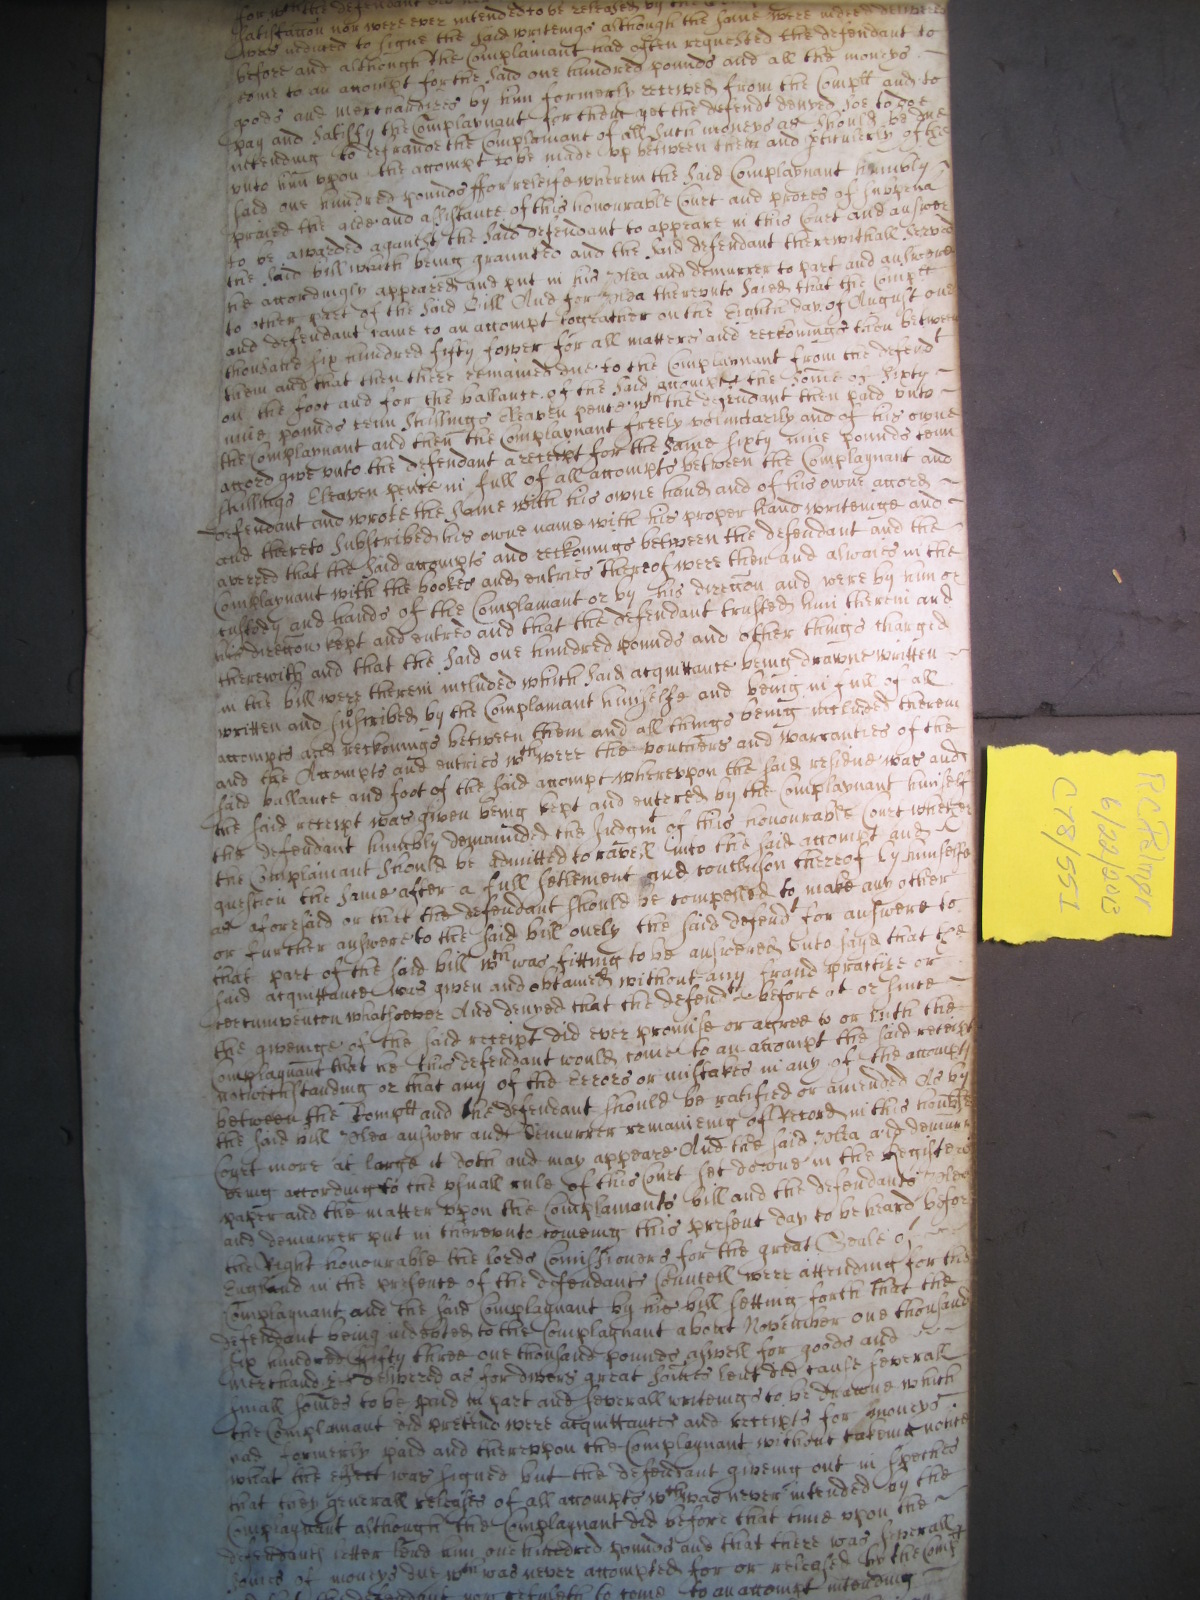 for wch the defendant
satisfaccon nor were ever intended to be released by the
was induced to signe the said writeings although the same were indeed delivered
before and although the Complainant had often requested the defendant to
come to an accompt for the said one hundred pounds and all the moneys
goods and merchandizes by him formerly received from the Complt and to
pay and satisfy the Complaynant for them yet the defendt denyed soe to doe
intending to defraude the Complainant of all such moneys as should be due
unto him upon the accompt to be made up between them and perticulerly of the
said one hundred pounds ffor releife wherein the said Complaynant humbly
praied the aide and assistance of this honourable Court and proces of Subpena
to be awarded against the said defendant to appeare in this Court and answere
the said bill which being graunted and the said defendant therewithall served
he accordingly appeared and put in his Plea and demurrer to part and answeared
to other part of the said Bill And for Plea thereunto saied that the Complt
and defendant came to an accompt togeather on the Eighth day of August one
thousand six hundred fifty fower for all matters and reckonings then between
them and that then there remained due to the Complaynant from the defendt
on the foot and for the ballance of the said accompt the some of sixty
nine pounds tenn shillings Eleaven pence wch the defendant then paid unto
the Complaynant and then the Complaynant freely voluntarily and of his owne
accord give unto the defendant a receipt for the same sixty nine pounds tenn
shillings Eleaven pence in full of all accompts between the Complaynant and
defendant and wrote the same with his owne hand and of his owne accord
and thereto subscribed his owne name with his proper hand writeinge and
averred that the said accompts and reckonings between the defendant and the
Complaynant with the bookes and entries thereof were then and alwaies in the
custody and hands of the Complainant or by his direccon and were by him or
his direccon kept and entred and that the defendant trusted him therein and
therewith and that the said one hundred pounds and other things charged
in the bill were therein included which said acquittance being drawne written
written and subscribed by the Complainant himselfe and being in full of all
accompts and reckonings between them and all things being included therein
and the Accompts and entries wch were the vouchers and warranties of the
said ballance and foot of the said accompt whereupon the said residue was and
the said receipt was given being kept and entered by the Complaynant himself
the defendant humbly demanded the Judgmt of this honourable Court whether
the Complainant should be admitted to ravell into the said accompt and
question the same after a full setlement and conclusion thereof by himselfe
as aforesaid or that the defendant should be compelled to make any other
or further answere to the said bill onely the said defendt for answere to
that part of the said bill wch was fitting to be answered unto sayd that the
said acquittance was given and obtained without any fraud practice or
circumvencon whatsoever And denyed that the defendt before at or since
the giveinge of the said receipt did ever promise or agree to or with the
Complaynant that he this defendant would come to an accompt the said receipt
notwithstanding or that any of the Errors or mistakes in any of the accompts
between the Complt and the defendant should be ratified or amended As by
the said bill Plea answer and demurrer remaineing of Record in this honoble
Court more at large it doth and may appeare And the said Plea and demurr
being according to the usuall rule of this Court set downe in the Registers
paper and the matter upon the Complainants bill and the defendants Plea
and demurrer put in thereunto comeing this present day to be heard before
the Right honourable the lords Comissioners for the great Seale of
England in the presence of the defendants Councell were attending for the
Complaynant and the said Complaynant by his bill setting forth that the
defendant being indebted to the Complaynant about November one thousand
six hundred fifty three one thousand pounds aswell for goods and
merchandizes delivered as for divers great somes lent did cause severall
small somes to be paid in part and severall writeings to be drawne which
the Complainant did pretend were acquittances and receipts for moneys
had formerly paid and thereupon the Complaynant without takeing notice
what the effect was signed but the defendant giveing out in speeches
that they generall releases of all accompts wch was never intended by the
Complaynant although the Complaynant did before that time upon the
defendants letter lend him one hundred pounds and that there was severall
somes of moneys due wch was never accompted for or released by the Complt
to come to an accompt intending
R C Palmer
6/22/2013
C78/551